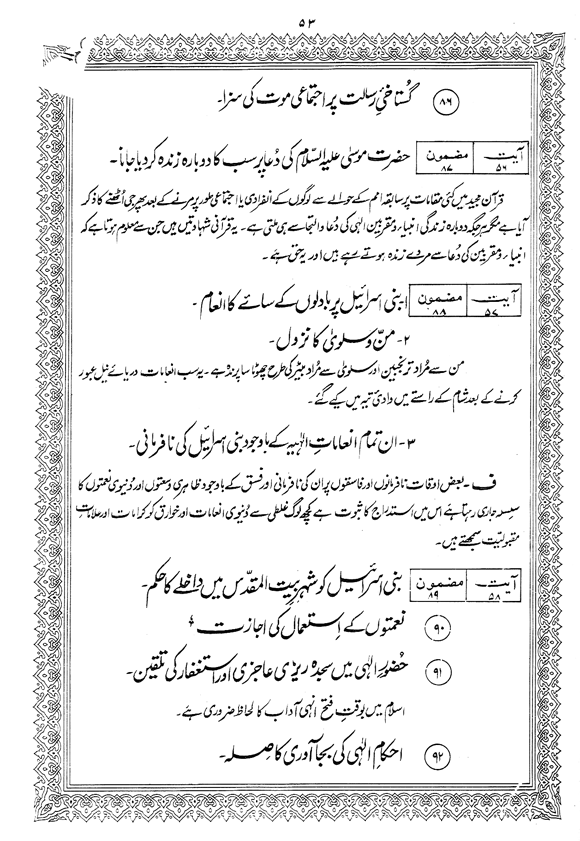 ۵۳
۸۶ گستاخیِٔ رسالت پر اجتماعی موت کی سزا۔
آیت ۵۶ مضمون ۸۷ حضرت موسیٰ علیہ السلام کی دُعا پر سب کا دوبارہ زندہ کر دیا جانا۔
قرآن مجید میں کئی مقامات پر سابقہ امم کے حوالے سے لوگوں کے انفرادی یا اجتماعی طور پر مرنے کے بعد پھر جی اُٹھنے کا ذکر
آیا ہے مگر ہر جگہ دوبارہ زندگی انبیاء و مقربین الٰہی کی دُعاء و التجا سے ہی ملتی ہے۔ یہ قرآنی شہادتیں ہیں جن سے معلوم ہوتا ہے کہ
انبیاء و مقربین کی دُعا سے مردے زندہ ہوتے رہے ہیں اور یہ حق ہے۔
آیت ۵۷ مضمون ۸۸ ۱ بنی اسرائیل پر بادلوں کے سائے کا انعام۔
۲۔ منّ و سلویٰ کا نزول۔
من سے مُراد ترنجبین اور سلویٰ سے مُراد بٹیر کی طرح چھوٹا سا پرندہ ہے۔ یہ سب انعامات دریائے نیل عبور
کرنے کے بعد شام کے راستے میں وادیٔ تیہ میں کیے گئے۔
۳۔ ان تمام انعاماتِ الٰہیہ کے باوجود بنی اسرائیل کی نافرمانی۔
ف۔ بعض اوقات نافرمانوں اور فاسقوں پر ان کی نافرمانی اور فسق کے باوجود ظاہری وسعتوں اور دُنیوی نعمتوں کا
سلسلہ جاری رہتا ہے اس میں استدراج کا ثبوت ہے کچھ لوگ غلطی سے دُنیوی انعامات اور خوارق کو کرامات اور علاماتِ
مقبولیت سمجھتے ہیں۔
آیت ۵۸ مضمون ۸۹ بنی اسرائیل کو شہر بیت المقدس میں داخلے کا حکم۔
۹۰ نعمتوں کے اِستعمال کی اجازت
۹۱ حضُورِ الٰہی میں سجدہ ریزی عاجزی اور استغفار کی تلقین۔
اسلام میں بوقتِ فتح انہی آداب کا لحاظ ضروری ہے۔
۹۲ احکامِ الٰہی کی بجاآوری کا صِلہ۔